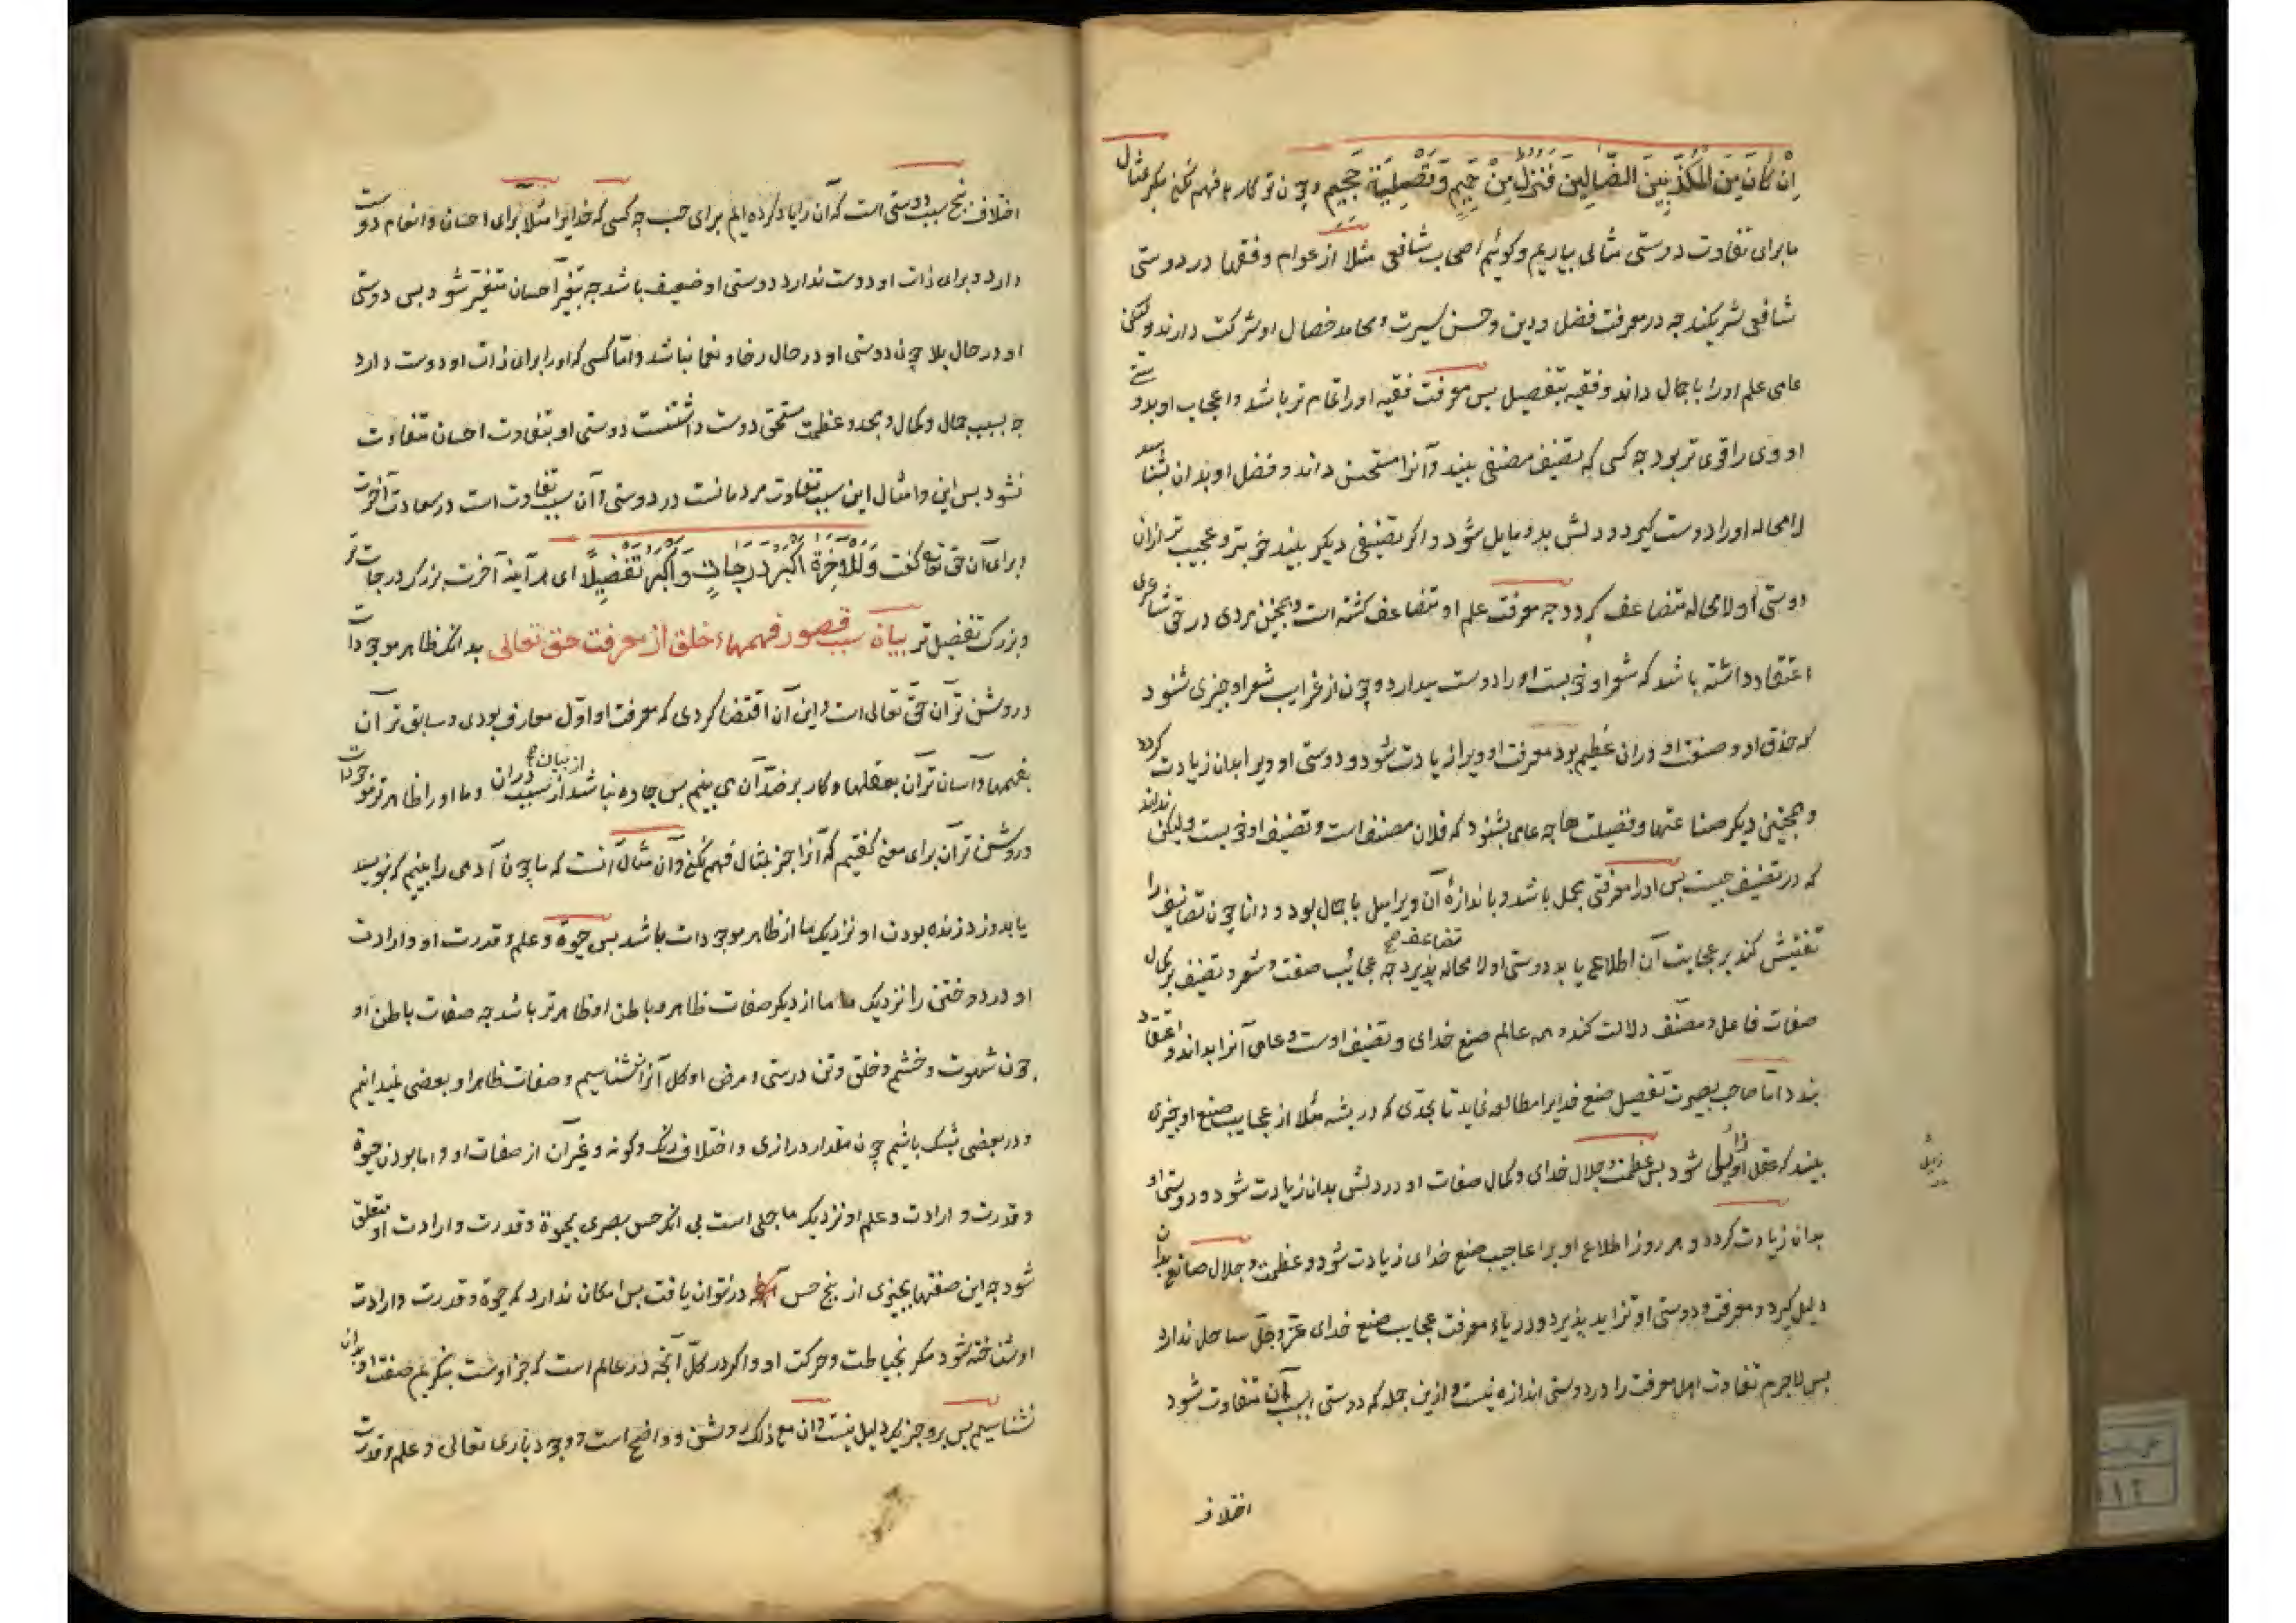 اِنْ كَانَ مِنَ المُكَذِّبِينَ الضَّالِّينَ فَنُزُلٌ مِنْ حَمِيمٍ وَتَصْلِيَةُ جَحِيمٍ و چون تو کارها فهم نکنی مکر بمثال
ما برای تفاوت دوستی مثالی بیاریم و کوئیم اصحاب شافعی مثلا از عوام و فقها در دوستی
شافعی شریکند چه در معرفت فضل و دین و حسن سیرت و محامد خصال او شرکت دارند ولیکن
عامی علم او را باجمال داند و فقیه بتفصیل بس معرفت فقیه او را تمام تر باشد و اعجاب او بدو
او وی را قوی تر بود چه کسی که تصنیف مصنفی بیند و آنرا مستحسن داند و فضل او بدان بشناسد
لا محاله او را دوست کیرد و دلش بدو مایل شود و اکر تصنیفی دیکر بیند خوبتر و عجیب تر ازان
دوستی او لا محاله متضاعف کردد چه معرفت علم او متضاعف کشته است و همچنین مردی در حق شاعری
اعتقاد داشته باشد که شعر او خوبست او را دوست میدارد و چون از غرایب شعر او چیزی شنود
که حذق او و صنعت او دران عظیم بود معرفت او ویرا زیادت شود و دوستی او ویرا بدان زیادت کردد
و همچنین دیکر صناعتها و فضیلت ها چه عامی بشنود که فلان مصنف است و تصنیف او خوبست ولیکن نداند
که در تصنیف چیست بس او را معرفتی مجمل باشد و باندازهٔ آن ویرا میل باجمال بود و دانا چون تصانیف را
تفتیش کند بر عجایب آن اطلاع یابد دوستی او لا محاله تضاعف پذیرد چه عجائب صنعت و شعر و تصنیف بر کمال
صفات فاعل و مصنف دلالت کند و همه عالم صنع خدای و تصنیف اوست و عامی آنرا بداند و اعتقاد
بندد اما صاحب بصیرت تفصیل صنع خدایرا مطالعه نماید تا بحدی که در پشه مثلا از عجایب صنع او چیزی
بیند که عقل او زائل شود بس عظمت و جلال خدای و کمال صفات او در دلش بدان زیادت شود و دوستی او
بدان زیادت کردد و هر روز اطلاع او بر اعاجیب صنع خدای زیادت شود و عظمت و جلال صانع بدان
دلیل کیرد و معرفت و دوستی او تزاید پذیرد و دریاء معرفت عجایب صنع خدای عز و جل ساحل ندارد
بس لاجرم تفاوت اهل معرفت را در دوستی اندازه نیست و ازین جمله که دوستی بسبب آن متفاوت شود
اختلاف
اختلاف پنج سبب دوستی است که آن را یاد کرده ایم برای حب چه کسی که خدایرا مثلا برای احسان و انعام دوست
دارد و برای ذات او دوست ندارد دوستی او ضعیف باشد چه بتغیر احسان متغیر شود بس دوستی
او در حال بلا چون دوستی او در حال رخا و نعما نباشد و اما کسی که او را برای ذات او دوست دارد
چه بسبب جمال و کمال و مجد و عظمت مستحق دوست داشتنست دوستی او بتفاوت احسان متفاوت
نشود بس این و امثال این سبب تفاوت مردمانست در دوستی و آن سبب تفاوت است در سعادت آخرت
و برای آن حق تعالی کفت وَلَلآخِرَةُ اَكْبَرُ دَرَجَاتٍ وَاَكْبَرُ تَفْضِيلًا ای هر آینه آخرت بزرک درجات تر
و بزرک تفضیل تر بیان سبب قصور فهمهاء خلق از معرفت حق تعالی بدانک ظاهر موجودات
و روشن تر آن حق تعالی است و این آن اقتضا کردی که معرفت او اول معارف بودی و سابق تر آن
بفهمها و آسان تر آن بعقلها و کار بر ضد آن می بینیم بس چاره نباشد از بیان سبب دران و ما او را ظاهر تر موجودات
و روشن تر آن برای معنی کفتیم که آنرا جز بمثال فهم نکنی و آن مثال آنست که ما چون آدمی را بینیم که نویسد
یا بدوزد زنده بودن او نزدیک ما از ظاهر موجودات باشد بس حیوة و علم و قدرت او و ارادت
او در دوختن را نزدیک ما از دیکر صفات ظاهر و باطن او ظاهر تر باشد چه صفات باطن او
چون شهوت و خشم و خلق و تن درستی و مرض او کل آنرا نشناسیم و صفات ظاهر او بعضی نمیدانیم
و در بعضی بشک باشیم چون مقدار درازی و اختلاف رنک و کونه و غیر آن از صفات او و اما بودن حیوة
و قدرت و ارادت و علم او نزدیک ما جلی است بی آنک حس بصری بحیوة و قدرت و ارادت او متعلق
شود چه این صفتها بچیزی از پنج حس در نتوان یافت بس امکان ندارد که حیوة و قدرت و ارادت
او شناخته شود مکر بخیاطت و حرکت او و اکر در کل آنچه در عالم است که جز اوست بنکریم صفت او بدان
نشناسیم بس برو جز یک دلیل نیست و آن مع ذلک روشن و واضح است و وجود باری تعالی و علم و قدرت